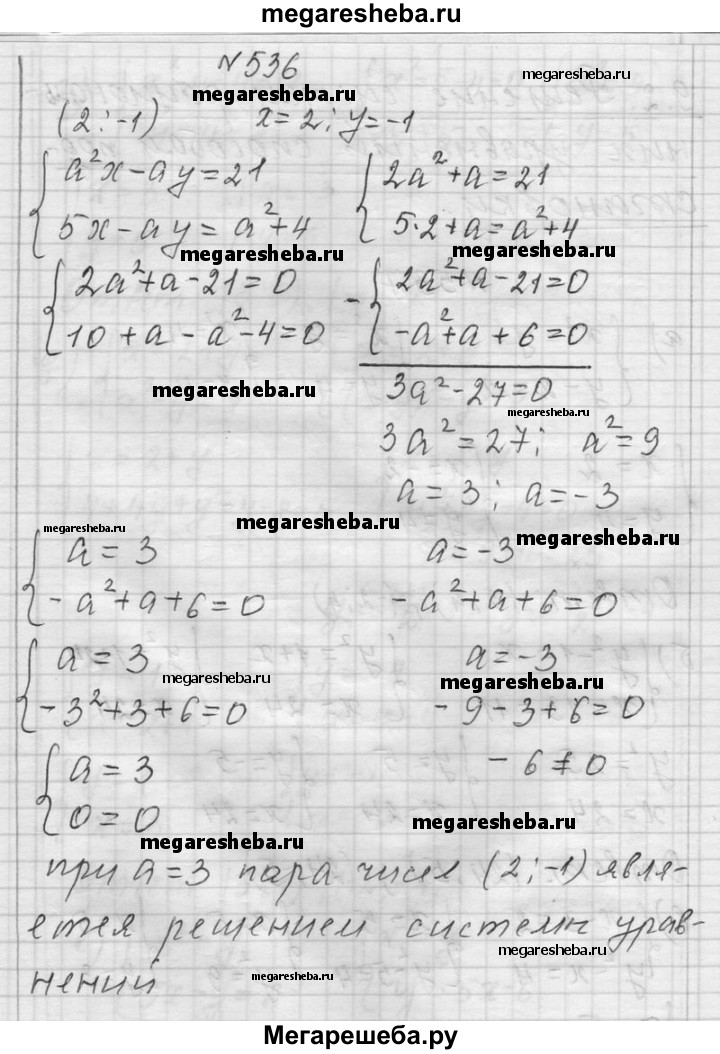 megaresheba.ru
№536
megaresheba.ru
megaresheba.ru
(2; -1) x = 2; y = -1
{ a²x - ay = 21 { 2a² + a = 21
{ 5x - ay = a² + 4 { 5·2 + a = a² + 4
megaresheba.ru megaresheba.ru
{ 2a² + a - 21 = 0 - { 2a² + a - 21 = 0
{ 10 + a - a² - 4 = 0 { -a² + a + 6 = 0
megaresheba.ru 3a² - 27 = 0
megaresheba.ru
3a² = 27; a² = 9
a = 3; a = -3
megaresheba.ru megaresheba.ru
{ a = 3 a = -3 megaresheba.ru
{ -a² + a + 6 = 0 -a² + a + 6 = 0
{ a = 3 a = -3
megaresheba.ru megaresheba.ru
{ -3² + 3 + 6 = 0 -9 - 3 + 6 = 0
{ a = 3 -6 ≠ 0
{ 0 = 0
megaresheba.ru megaresheba.ru
при a = 3 пара чисел (2; -1) явля-
ется решением системы урав-
megaresheba.ru
нений megaresheba.ru megaresheba.ru
Мегарешеба.ру